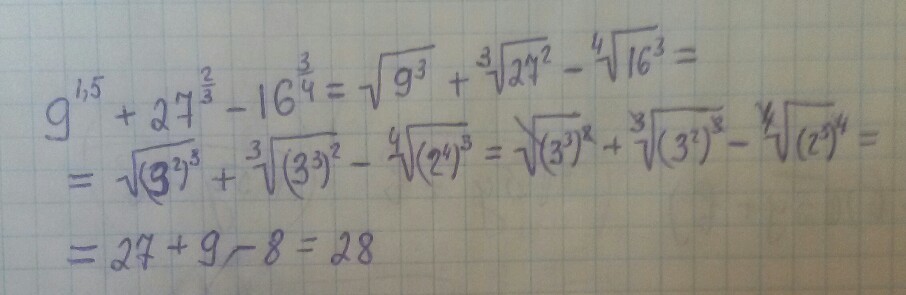 9^{1,5} + 27^{\frac{2}{3}} - 16^{\frac{3}{4}} = \sqrt{9^3} + \sqrt[3]{27^2} - \sqrt[4]{16^3} =
= \sqrt{(3^2)^3} + \sqrt[3]{(3^3)^2} - \sqrt[4]{(2^4)^3} = \sqrt{(3^3)^2} + \sqrt[3]{(3^2)^3} - \sqrt[4]{(2^3)^4} =
= 27 + 9 - 8 = 28